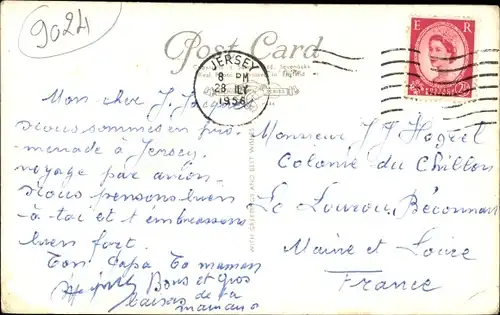 9024
Post Card
JERSEY
8 PM
28 JLY
1956
E R
Mon cher J. Jacques
nous sommes en pro-
menade à Jersey.
voyage par avion.
nous pensons bien
à toi et t'embrassons
bien fort.
Ton Papa Ta maman
Bons et gros
baisers de ta
maman
WITH GREETINGS AND BEST WISHES
Monsieur J J
Colonie du Chillon
Le Louroux Béconnais
Maine et Loire
France